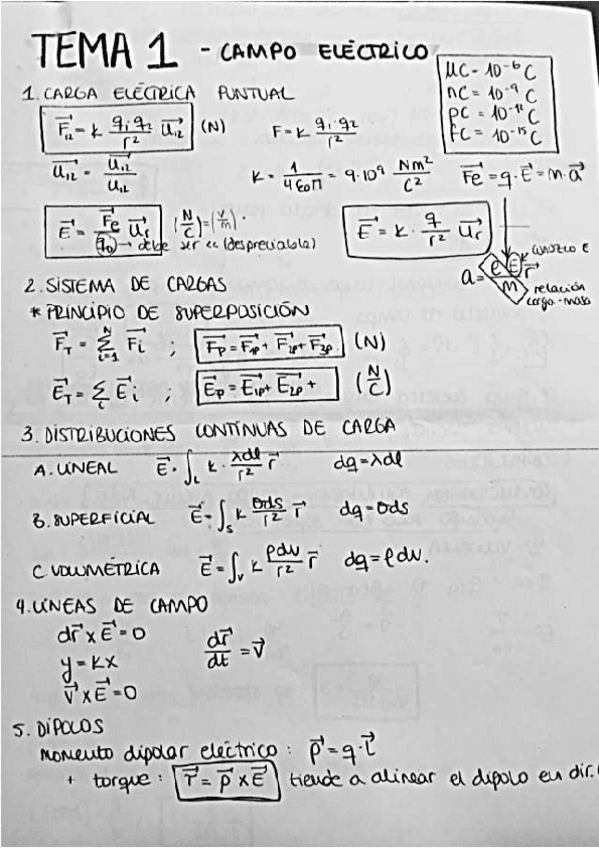 TEMA 1 - CAMPO ELÉCTRICO
μC = 10⁻⁶ C
nC = 10⁻⁹ C
pC = 10⁻¹² C
fC = 10⁻¹⁵ C
1. CARGA ELÉCTRICA PUNTUAL
F⃗₁₂ = k q₁ q₂ / r² u⃗₁₂ (N) F = k q₁ q₂ / r²
u⃗₁₂ = u⃗₁₂ / u₁₂ k = 1 / 4ε₀π = 9·10⁹ Nm² / C² F⃗e = q·E⃗ = m·a⃗
E⃗ = F⃗e / q₀ u⃗r (N/C) = (V/m). E⃗ = k · q / r² u⃗r
→ debe ser << (despreciable)
a = e E / m r⃗
conozco E
relación carga-masa
2. SISTEMA DE CARGAS
* PRINCIPIO DE SUPERPOSICIÓN
F⃗T = Σᴺᵢ₌₁ F⃗i ; F⃗p = F⃗1p + F⃗2p + F⃗3p (N)
E⃗T = Σᵢ E⃗i ; E⃗p = E⃗1p + E⃗2p + (N/C)
3. DISTRIBUCIONES CONTÍNUAS DE CARGA
A. LINEAL E⃗ = ∫L k · λdl / r² r⃗ dq = λdl
B. SUPERFICIAL E⃗ = ∫s k σds / r² r⃗ dq = σds
C. VOLUMÉTRICA E⃗ = ∫v k ρdv / r² r⃗ dq = ρdv.
4. LÍNEAS DE CAMPO
dr⃗ x E⃗ = 0 dr⃗ / dt = v⃗
y = kx
v⃗ x E⃗ = 0
5. DIPOLOS
momento dipolar eléctrico : p⃗ = q · l⃗
+ torque : τ⃗ = p⃗ x E⃗ tiende a alinear el dipolo en dir.